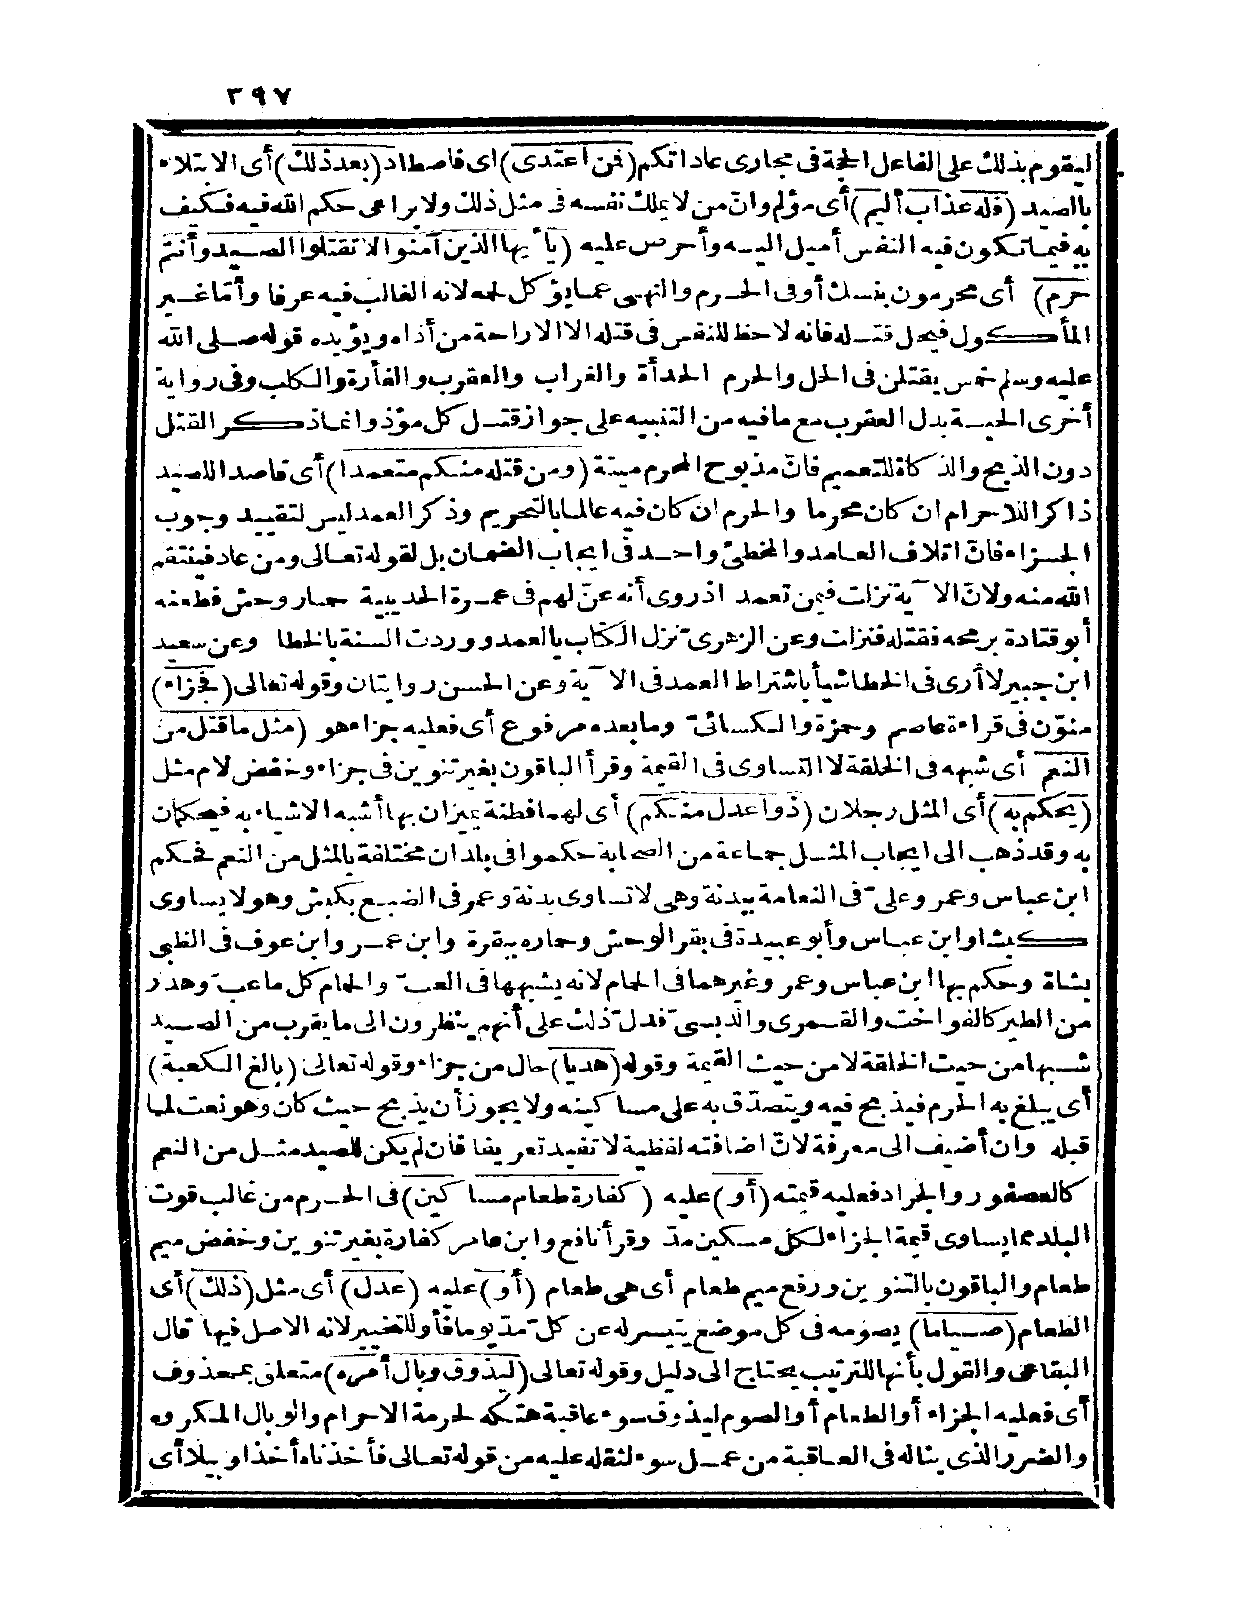 ٣٩٧
ليقوم بذلك على الفاعل الحجة فى مجارى عاداتكم (فمن اعتدى) اى فاصطاد (بعد ذلك) أى الابتلاء
بالصيد (فله عذاب أليم) أى مؤلم وانّ من لا يملك نفسه فى مثل ذلك ولا يراعى حكم الله فيه فكيف
به فيما تكون فيه النفس أميل اليه وأحرص عليه (يا أيها الذين آمنوا لا تقتلوا الصيد وأنتم
حرم) أى محرمون بنسك أو فى الحرم والنهى عما يؤكل لحمه لانه الغالب فيه عرفا وأمّا غير
المأكول فيحل قتله فانه لا حظ للنفس فى قتله الا الاراحة من أذاه ويؤيده قوله صلى الله
عليه وسلم خمس يقتلن فى الحل والحرم الحدأة والغراب والعقرب والفأرة والكلب وفى رواية
أخرى الحية بدل العقرب مع ما فيه من التنبيه على جواز قتل كل مؤذ وانما ذكر القتل
دون الذبح والذكاة للتعميم فانّ مذبوح المحرم ميتة (ومن قتله منكم متعمدا) أى قاصدا للصيد
ذاكرا للاحرام ان كان محرما والحرم ان كان فيه عالما بالتحريم وذكر العمد ليس لتقييد وجوب
الجزاء فانّ اتلاف العامد والمخطئ واحد فى ايجاب الضمان بل لقوله تعالى ومن عاد فينتقم
الله منه ولانّ الآية نزلت فيمن تعمد اذ روى أنه عنّ لهم فى عمرة الحديبية حمار وحش فطعنه
أبو قتادة برمحه فقتله فنزلت وعن الزهرى نزل الكتاب بالعمد ووردت السنة بالخطا وعن سعيد
ابن جبير لا أرى فى الخطا شيأ باشتراط العمد فى الآية وعن الحسن روايتان وقوله تعالى (فجزاء)
منوّن فى قراءة عاصم وحمزة والكسائىّ وما بعده مرفوع أى فعليه جزاء هو (مثل ما قتل من
النعم) أى شبهه فى الخلقة لا التساوى فى القيمة وقرأ الباقون بغير تنوين فى جزاء وخفض لام مثل
(يحكم به) أى المثل رجلان (ذوا عدل منكم) أى لهما فطنة يميزان بها أشبه الاشياء به فيحكمان
به وقد ذهب الى ايجاب المثل جماعة من الصحابة حكموا فى بلدان مختلفة بالمثل من النعم فحكم
ابن عباس وعمر وعلىّ فى النعامة ببدنة وهى لا تساوى بدنة وعمر فى الضبع بكبش وهو لا يساوى
كبشا وابن عباس وأبو عبيدة فى بقر الوحش وحماره ببقرة وابن عمر وابن عوف فى الظبى
بشاة وحكم بها ابن عباس وعمر وغيرهما فى الحمام لانه يشبهها فى العبّ والحمام كل ما عبّ وهدر
من الطير كالفواخت والقمرى والدبسىّ فدلّ ذلك على أنهم ينظرون الى ما يقرب من الصيد
شبها من حيث الخلقة لا من حيث القيمة وقوله (هديا) حال من جزاء وقوله تعالى (بالغ الكعبة)
أى يبلغ به الحرم فيذبح فيه ويتصدّق به على مساكينه ولا يجوز أن يذبح حيث كان وهو نعت لما
قبله وان أضيف الى معرفة لانّ اضافته لفظية لا تفيد تعريفا فان لم يكن للصيد مثل من النعم
كالعصفور والجراد فعليه قيمته (أو) عليه (كفارة طعام مساكين) فى الحرم من غالب قوت
البلد مما يساوى قيمة الجزاء لكل مسكين مدّ وقرأ نافع وابن عامر كفارة بغير تنوين وخفض ميم
طعام والباقون بالتنوين ورفع ميم طعام أى هى طعام (أو) عليه (عدل) أى مثل (ذلك) أى
الطعام (صياما) يصومه فى كل موضع يتيسر له عن كلّ مدّ يوما فأو للتخيير لانه الاصل فيها قال
البقاعى والقول بأنها للترتيب يحتاج الى دليل وقوله تعالى (ليذوق وبال أمره) متعلق بمحذوف
أى فعليه الجزاء أو الطعام أو الصوم ليذوق سوء عاقبة هتكه لحرمة الاحرام والوبال المكروه
والضرر الذى يناله فى العاقبة من عمل سوء لثقله عليه من قوله تعالى فأخذناه أخذا وبيلا أى